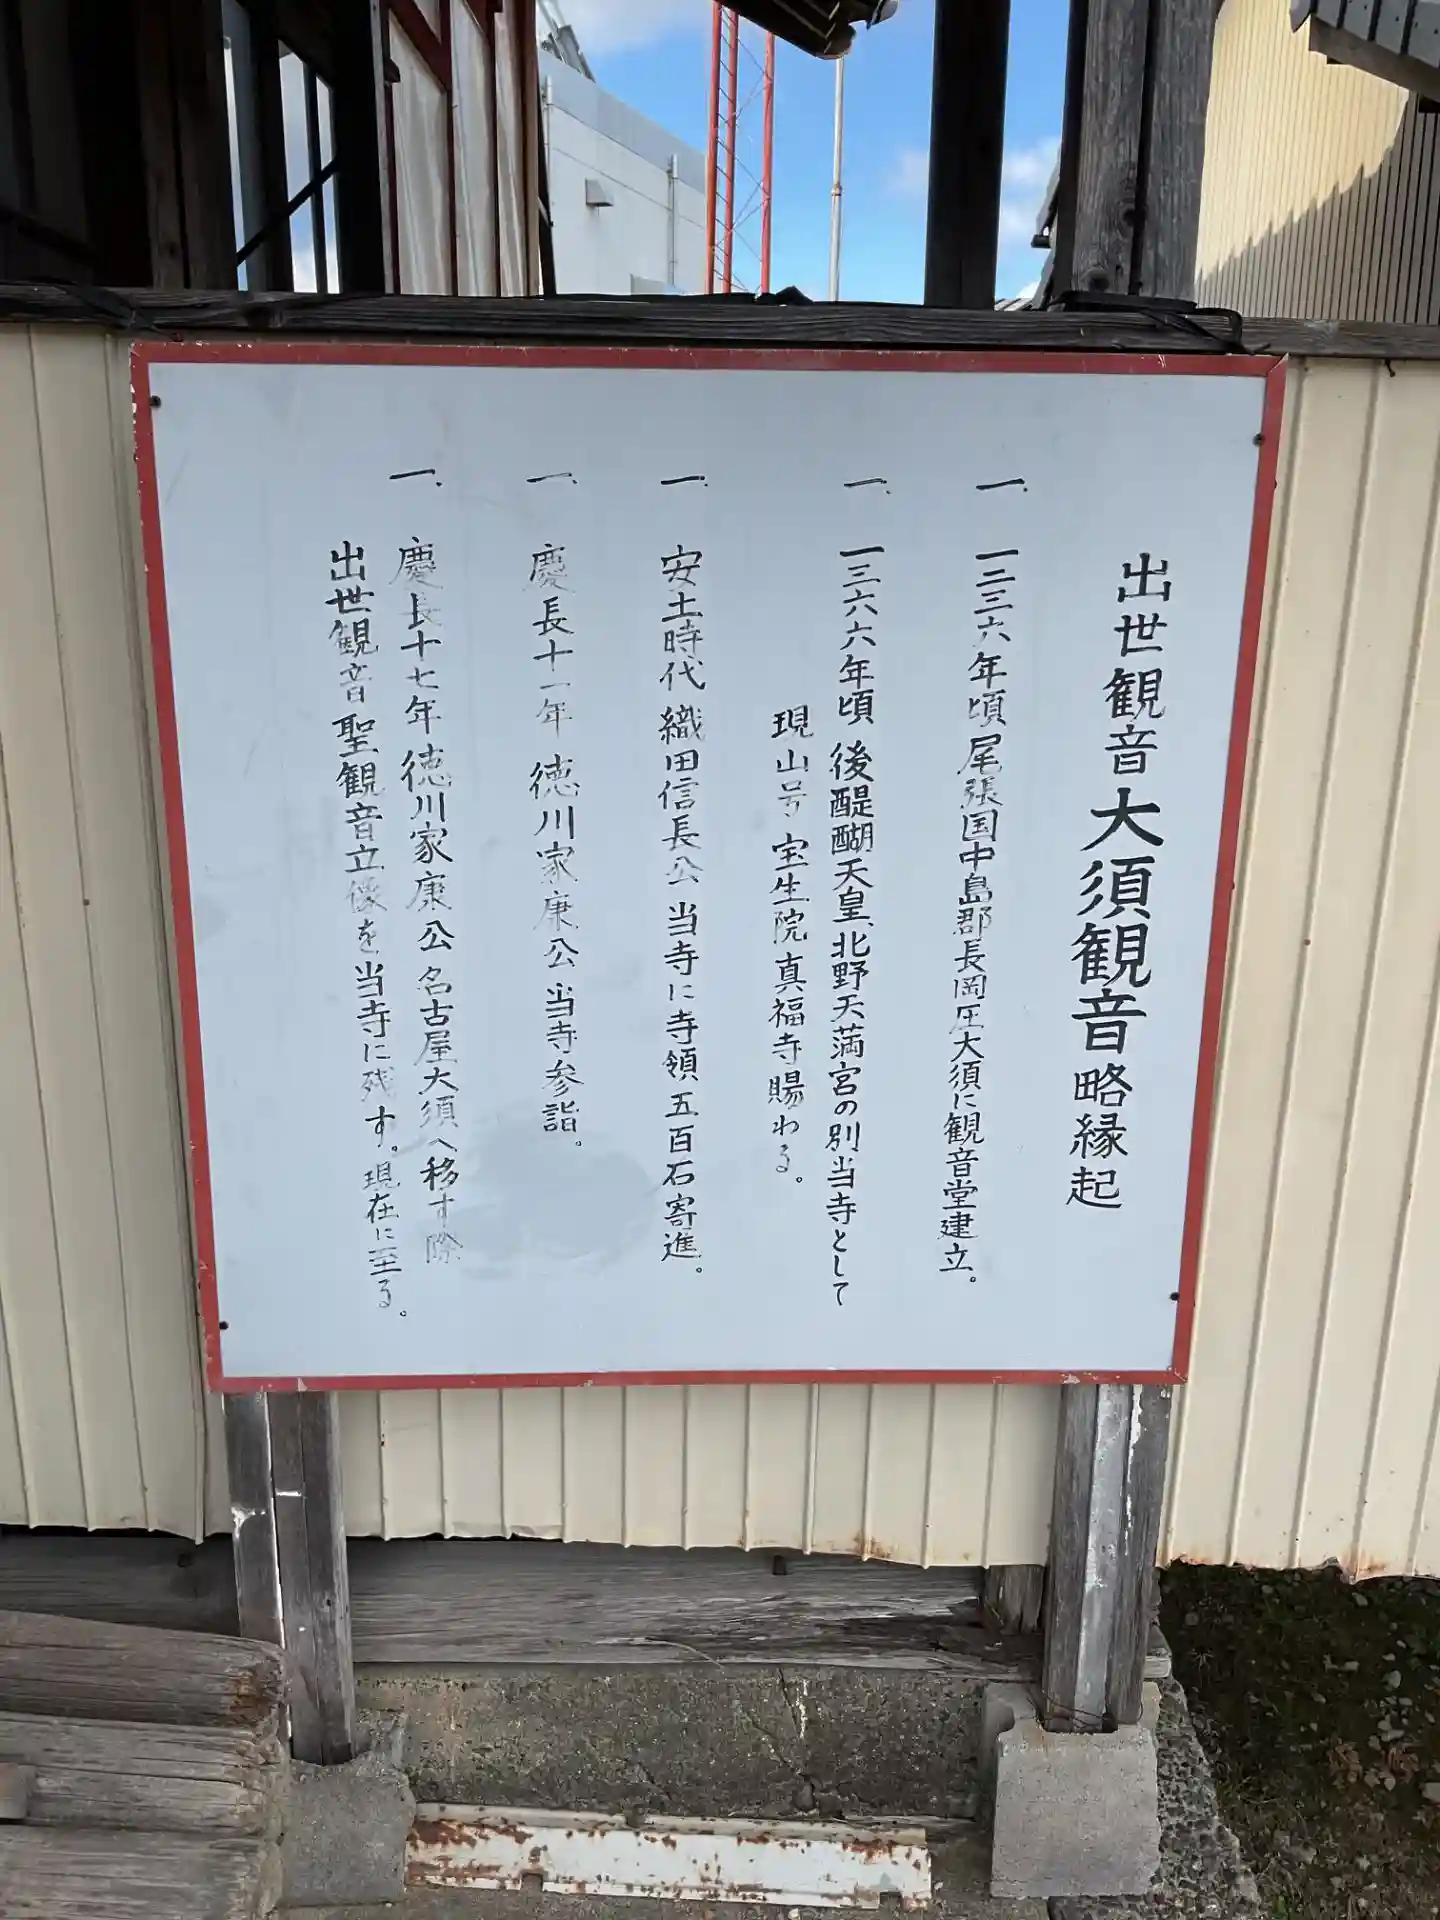 出世観音大須観音略縁起
一、一二三六年頃 尾張国中島郡長岡庄大須に観音堂建立。
一、一三六六年頃 後醍醐天皇、北野天満宮の別当寺として
現山号 宝生院 真福寺賜わる。
一、安土時代 織田信長公 当寺に寺領五百石寄進。
一、慶長十一年 徳川家康公 当寺参詣。
一、慶長十七年 徳川家康公 名古屋大須へ移す際
出世観音 聖観音立像を当寺に残す。現在に至る。